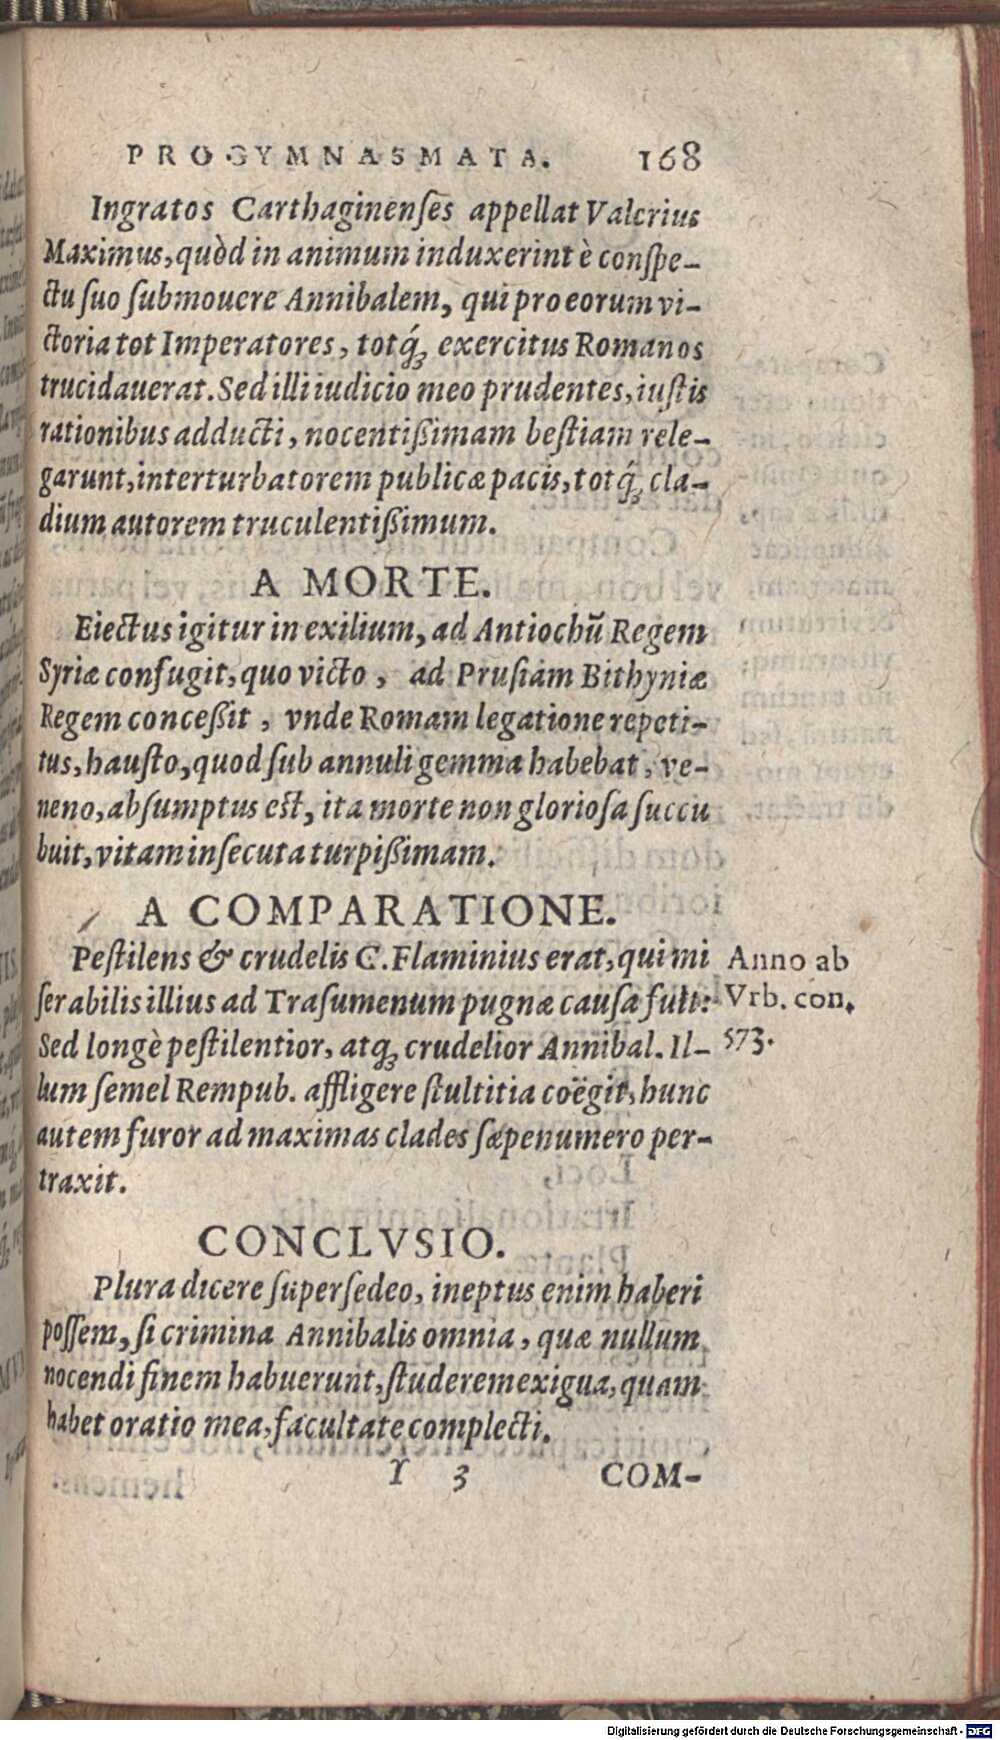 PROGYMNASMATA. 168
Ingratos Carthaginenſes appellat Valerius
Maximus, quòd in animum induxerint è conſpe-
ctu ſuo ſubmouere Annibalem, qui pro eorum vi-
ctoria tot Imperatores, totq́; exercitus Romanos
trucidauerat. Sed illi iudicio meo prudentes, iuſtis
rationibus adducti, nocentißimam beſtiam rele-
garunt, interturbatorem publicæ pacis, totq́; cla-
dium autorem truculentißimum.
A MORTE.
Eiectus igitur in exilium, ad Antiochū Regem
Syriæ confugit, quo victo, ad Pruſiam Bithyniæ
Regem conceßit, vnde Romam legatione repeti-
tus, hauſto, quod ſub annuli gemma habebat, ve-
neno, abſumptus eſt, ita morte non glorioſa ſuccu
buit, vitam inſecuta turpißimam.
A COMPARATIONE.
Peſtilens & crudelis C. Flaminius erat, qui mi
ſerabilis illius ad Traſumenum pugnæ cauſa fuit:
Sed longè peſtilentior, atq; crudelior Annibal. Il-
lum ſemel Rempub. affligere ſtultitia coëgit, hunc
autem furor ad maximas clades ſæpenumero per-
traxit.
Anno ab
Vrb. con.
573.
CONCLVSIO.
Plura dicere ſuperſedeo, ineptus enim haberi
poſſem, ſi crimina Annibalis omnia, quæ nullum
nocendi finem habuerunt, ſtuderem exigua, quam
habet oratio mea, facultate complecti.
Y 3 COM-
Digitalisierung gefördert durch die Deutsche Forschungsgemeinschaft - DFG